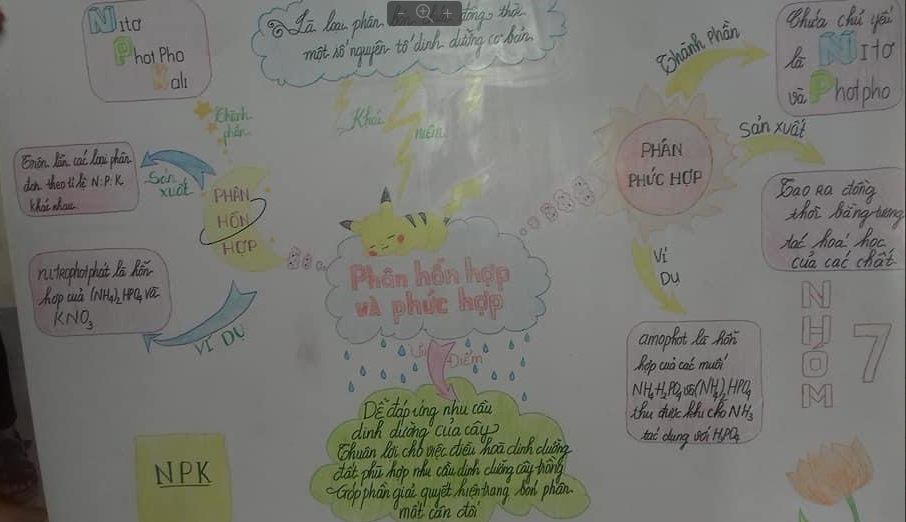 NITơ
PhotPho
Kali
Là loại phân đồng thời
một số nguyên tố dinh dưỡng cơ bản
Thành phần
Chứa chủ yếu
là NITơ
và Photpho
Thành
phần
Khái niệm
Sản xuất
PHÂN
PHỨC HỢP
Trộn lẫn các loại phân
đơn theo tỉ lệ N:P:K
khác nhau
Sản
xuất
PHÂN
HỖN
HỢP
Tạo ra đồng
thời bằng tương
tác hoá học
của các chất
nitrophotphat là hỗn
hợp của (NH4)2HPO4 và
KNO3
VÍ DỤ
Phân hỗn hợp
và phức hợp
Ví
Dụ
Ưu Điểm
amophot là hỗn
hợp của các muối
NH4H2PO4 và (NH4)2HPO4
thu được khi cho NH3
tác dụng với H3PO4
NHÓM 7
Dễ đáp ứng nhu cầu
dinh dưỡng của cây
Thuận lợi cho việc điều hoà dinh dưỡng
đất phù hợp nhu cầu dinh dưỡng cây trồng
Góp phần giải quyết hiện trạng bón phân
mất cân đối
NPK